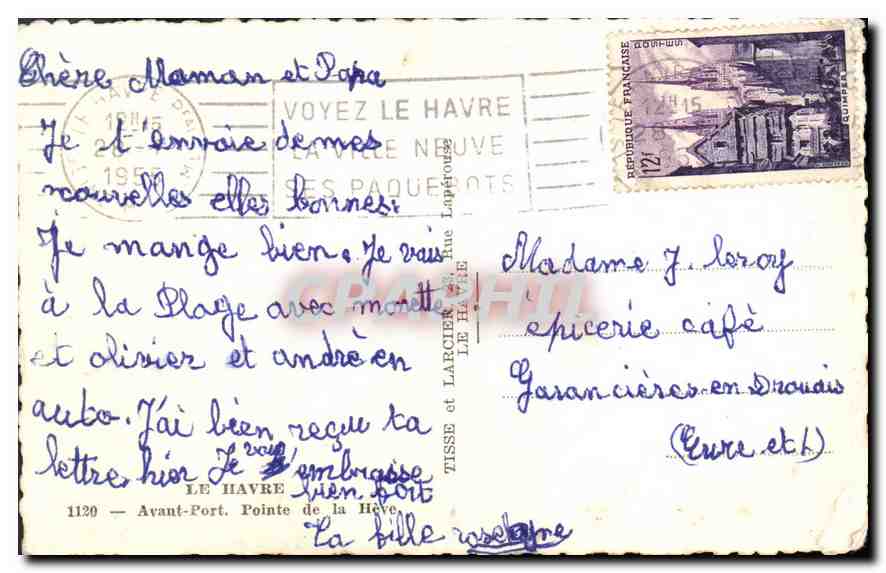 Chère Maman et Papa
Je t'envoie de mes
nouvelles elles bonnes.
Je mange bien. Je vais
à la Plage avec
et olivier et andrè en
auto. J'ai bien reçue ta
lettre hier Je vous t'embrasse
bien fort
La fille
LE HAVRE
1120 — Avant-Port. Pointe de la Hève
VOYEZ LE HAVRE
LA VILLE NEUVE
SES PAQUEBOTS
LE HAVRE
12H15
28
195
TISSE et LARCIER 23, Rue Lapérouse
LE HAVRE
CPAPHIL
RÉPUBLIQUE FRANÇAISE
POSTES
12F
QUIMPER
12H15
28
Madame J. leroy
èpicerie cafè
Garancières en Drouais
(Eure et L)